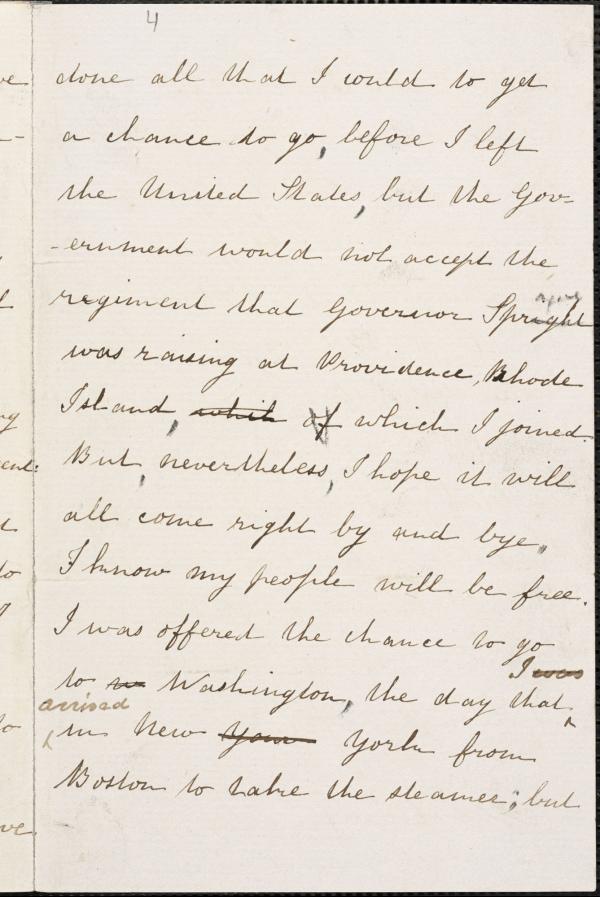 4
done all that I could to get
a chance to go, before I left
the United States, but the Gov=
-ernment would not accept the
regiment that Governor Spright
was raising at Providence, Rhode
Island, whih of which I joined.
But, nevertheless, I hope it will
all come right by and bye,
I know my people will be free.
I was offered the chance to go
I was
to w Washington, the day that
arrived
in New Your York from
Boston to take the steamer; but